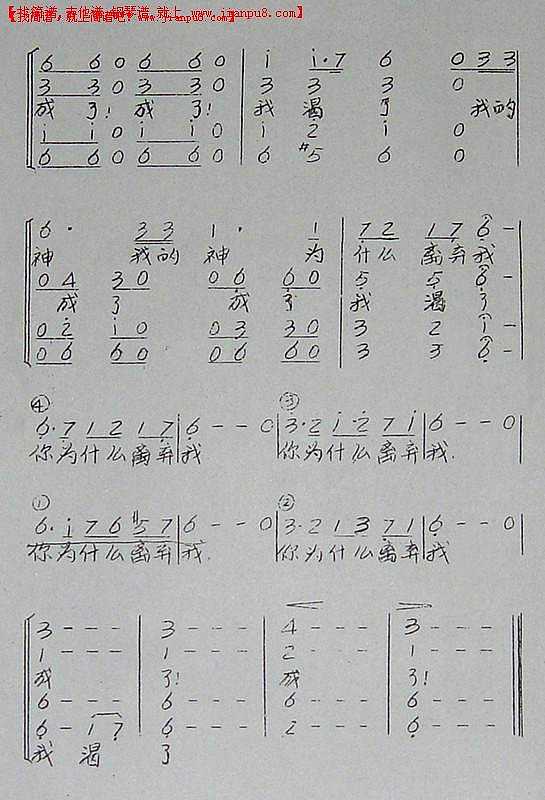 【找简谱,吉他谱,钢琴谱 就上 www.jianpu8.com】
【我简谱,就上简谱吧! www.jianpu8.com】
6 6 0 6 6 0 | i i·7 6 0 3 3
3 3 0 3 3 0 | 3 3 3 0
成了! 成了! 我 渴 了 我的
i i 0 i i 0 | i 2 i 0
6 6 0 6 6 0 | 6 #5 6 0
6· 3 3 1· 1 | 7 2 1 7 6 -
神 我的 神 为 什么 离弃 我
0 4 3 0 0 6 6 0 | 5 5 6 -
成 了 成 了 我 渴 了
0 2 i 0 0 3 3 0 | 3 2 1 -
0 6 6 0 0 6 6 0 | 3 3 6 -
④ ③
6·7 1 2 1 7 | 6 - - 0 | 3·2 i 2 7 i | 6 - - 0
你为什么离弃我. 你为什么离弃我.
① ②
6·i 7 6 #5 7 | 6 - - 0 | 3·2 1 3 7 1 | 6 - - 0
你为什么离弃我. 你为什么离弃我
3 - - - | 3 - - - | 4 - - - | 3 - - -
1 - - - | 1 - - - | 2 - - - | 1 - - -
成 了! 成 了!
6 - - - | 6 - - - | 6 - - - | 6 - - -
6 - 1 7 | 6 - - - | 2 - - - | 6 - - -
我 渴 了